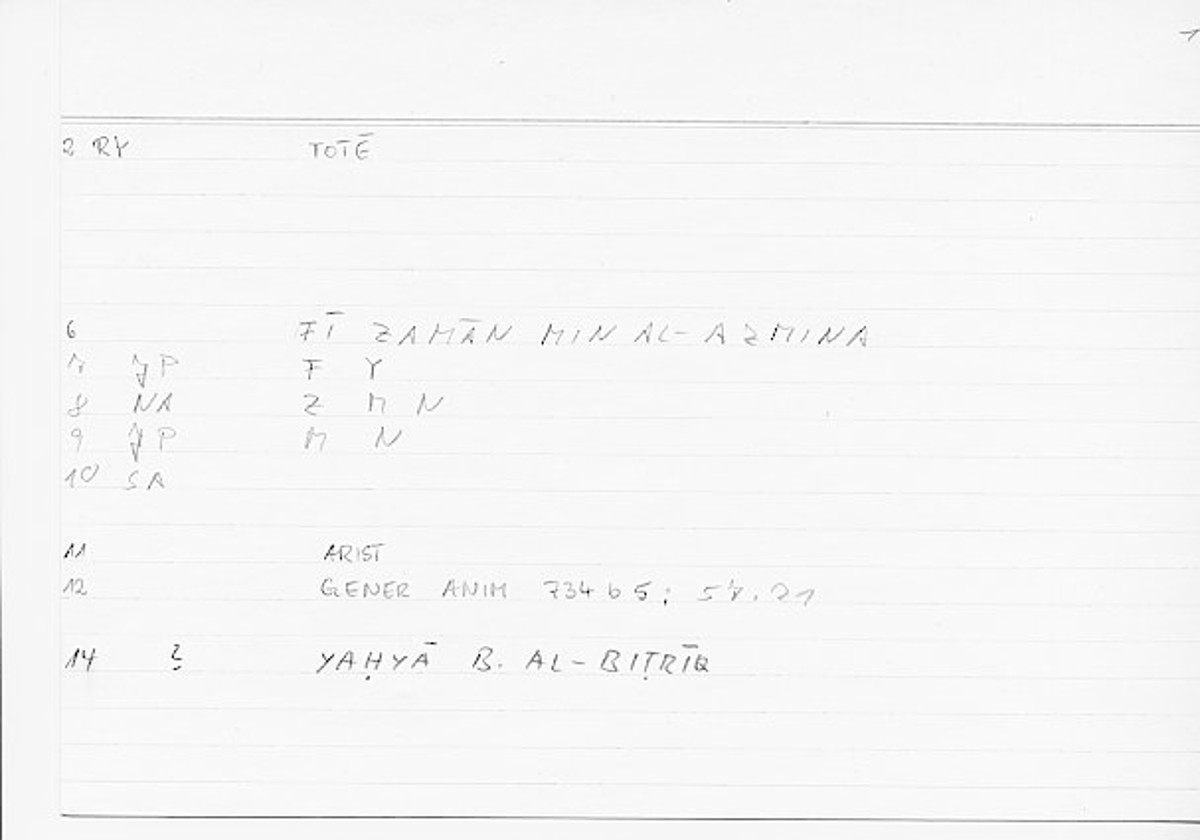 1
2 RY TOTĒ
6 FĪ ZAMĀN MIN AL-AZMINA
7 JP F Y
8 NA Z M N
9 JP M N
10 SA
11 ARIST
12 GENER ANIM 734 b 5; 57.21
14 ? YAḤYĀ B. AL-BIṬRĪQ